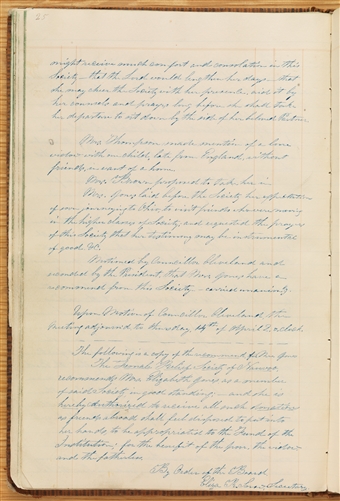 27
might receive much comfort and consolation in this
Society— that the Lord would lengthen her days— that
she may cheer the Society with her presence, aid it by
her counsels and prayers long before she shall take
her departure to sit down by the side of her beloved
Mrs. Thompson made mention of a lone
widow with one child, late from England, without
friends, in want of a home
Mrs. proposed to take her in
Mrs. Jones laid before the Society her expectation
of soon journeying to Ohio to visit friends
in the higher classes of society and requested the prayers
of this Society that her testimony may be instrumental
of good &c.
Motioned by Councillor Cleveland and
seconded by the President, that Mrs. Jones have a
recommend from this Society— carried unanimously.
Upon Motion of Councillor Cleveland the
Meeting adjourned to thursday, 14th of April 2, o'clock.
The following is a copy of the recommend for Mrs. Jones
The Female Relief Society of Nauvoo,
recommends Mrs. Elizabeth Jones as a member
of said Society in good standing; and she is
hereby authorized to receive all such donations
as friends abroad shall feel disposed to put into
her hands to be appropriated to the Fund of the
Institution, for the benefit of the poor, the widow
and the fatherless
By Order of the Board
Secretary